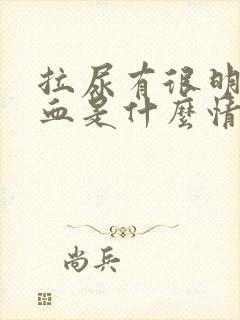 拉尿有很明
血是什麼情
尚兵